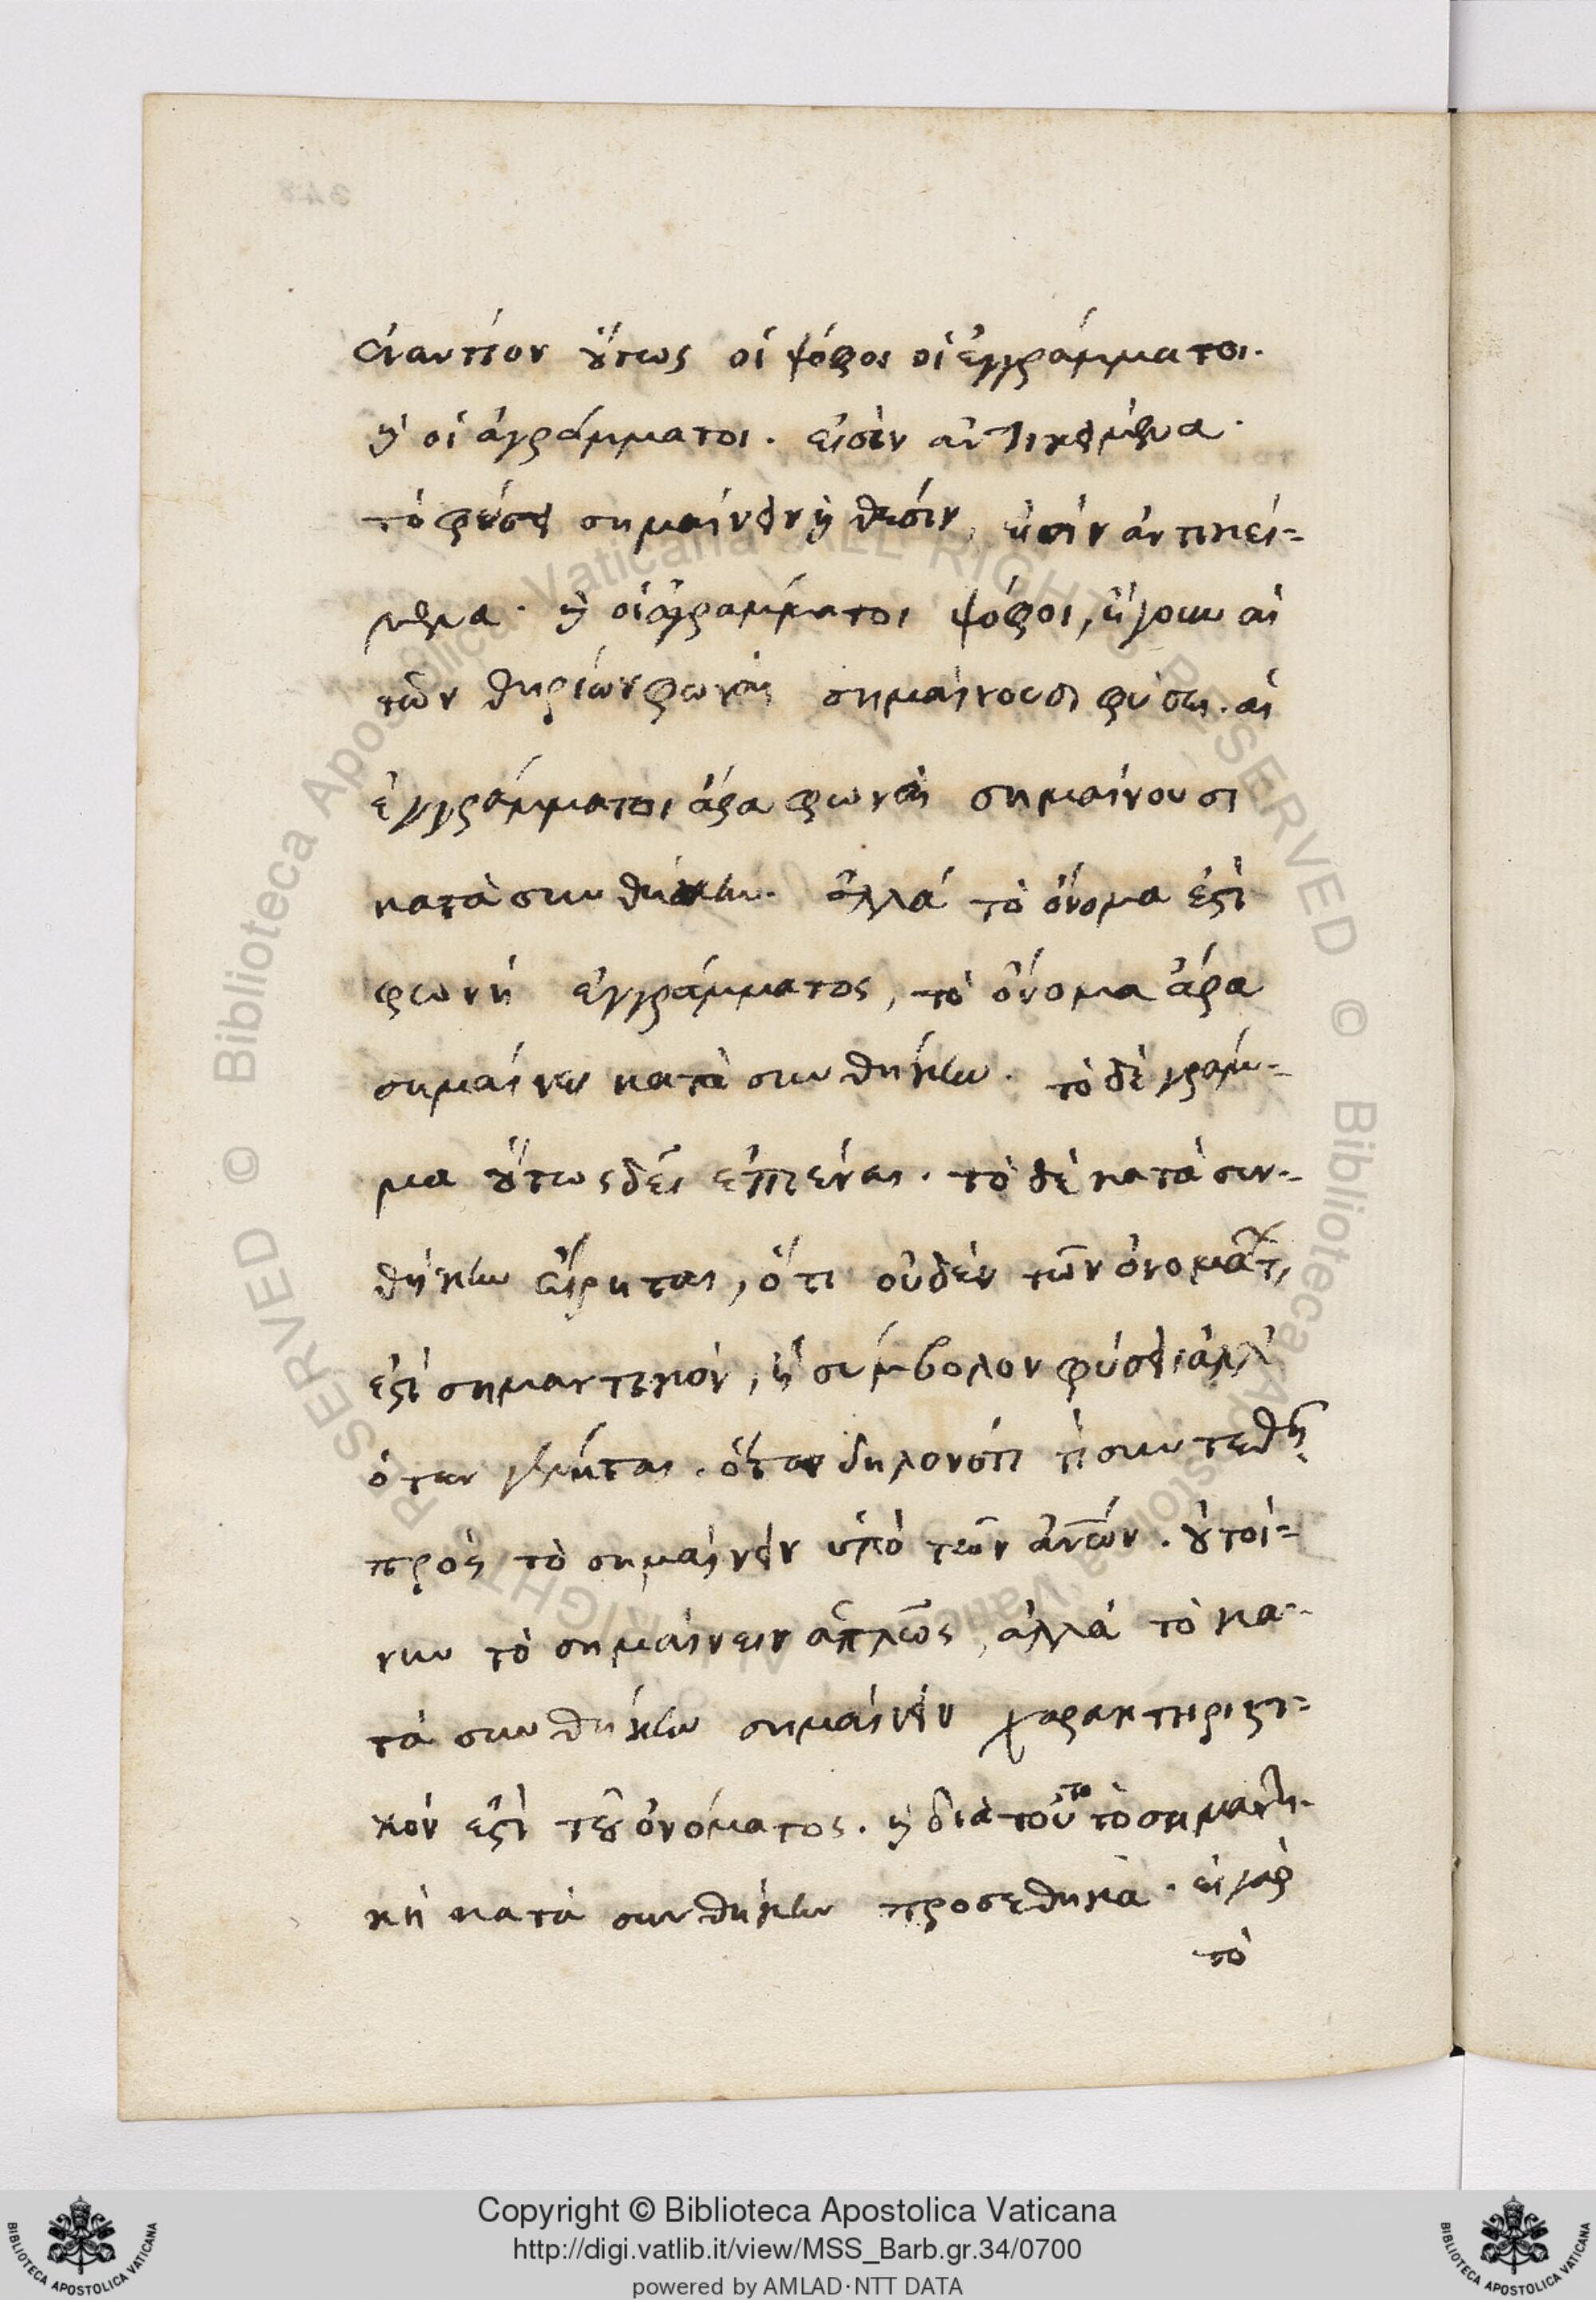 ἐναντίον οὕτως οἱ ψόφοι οἱ ἐγγράμματοι.
καὶ οἱ ἀγράμματοι. εἰσὶν ἀντικείμενα.
τὸ φύσει σημαίνειν καὶ θέσιν, εἰσὶν ἀντικεί-
μενα. καὶ οἱ ἀγράμματοι ψόφοι, ἤγουν αἱ
τῶν θηρίων φωναὶ σημαίνουσι φύσει. αἱ
ἐγγράμματοι ἄρα φωναὶ σημαίνουσι
κατὰ συνθήκην. ἀλλὰ τὸ ὄνομα ἐστὶ
φωνὴ ἐγγράμματος, τὸ ὄνομα ἄρα
σημαίνει κατὰ συνθήκην. τὸ δὲ γράμ-
μα οὕτως δεῖ ἐπιέναι. τὸ δὲ κατὰ συν-
θήκην εἴρηται, ὅτι οὐδὲν τῶν ὀνομάτ
ἐστὶ σημαντικόν, ἢ σύμβολον φύσει ἀλλ'
ὅταν γένηται. ὅταν δηλονότι συντεθῇ
πρὸς τὸ σημαίνειν ὑπὸ τῶν ἀνων. οὐ τοί-
νυν τὸ σημαίνειν ἁπλῶς, ἀλλὰ τὸ κα-
τὰ συνθήκην σημαίνειν χαρακτηριστι-
κόν ἐστὶ τοῦ ὀνόματος. καὶ διὰ τοῦτο τὸ σημαντι-
κὴ κατὰ συνθήκην προσεθηκα. εἰ γὰρ
τὸ
Copyright © Biblioteca Apostolica Vaticana
http://digi.vatlib.it/view/MSS_Barb.gr.34/0700
powered by AMLAD·NTT DATA